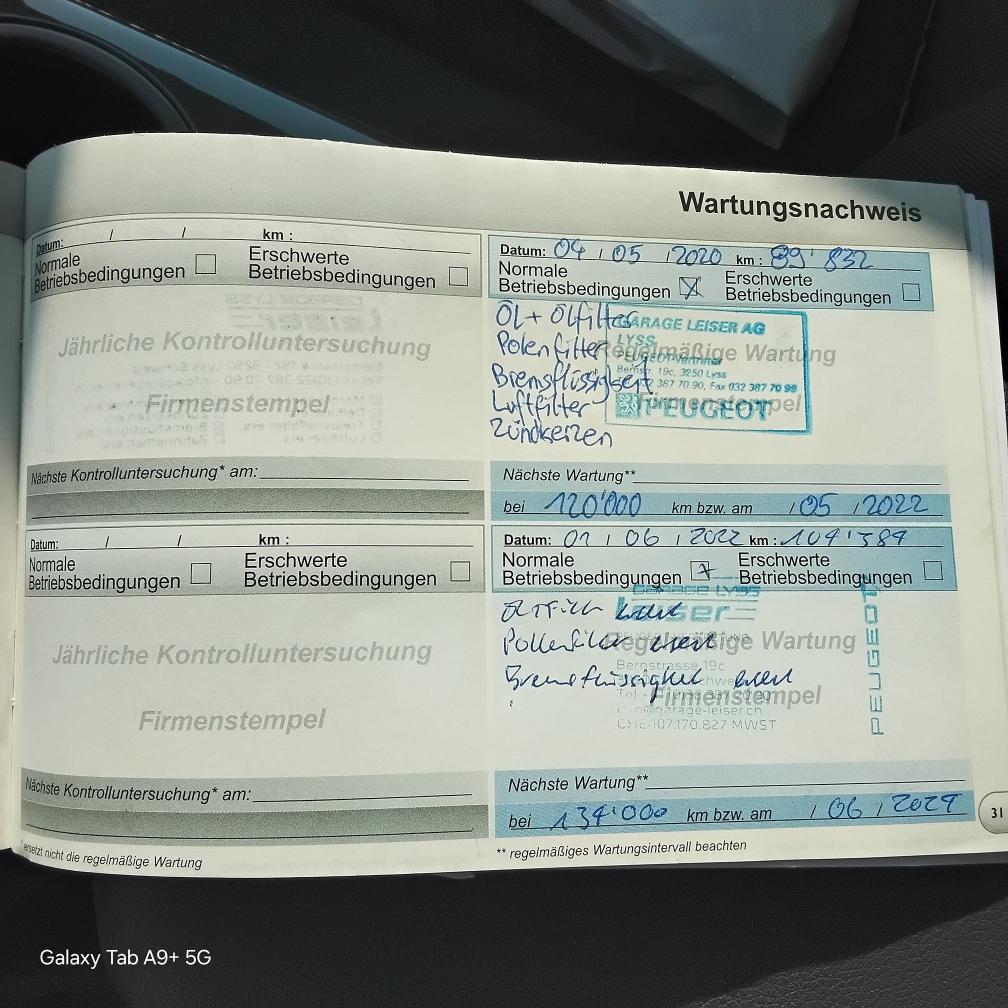 Wartungsnachweis
Datum: / / km :
Normale Betriebsbedingungen
Erschwerte Betriebsbedingungen
Jährliche Kontrolluntersuchung
Firmenstempel
Nächste Kontrolluntersuchung* am:
Datum: 04 / 05 / 2020 km : 89'832
Normale Betriebsbedingungen
Erschwerte Betriebsbedingungen
Öl + Ölfilter
Polenfilter
Bremsflüssigkeit
Luftfilter
Zündkerzen
Regelmäßige Wartung
Firmenstempel
GARAGE LEISER AG
LYSS
PEUGEOT-Vertreter
19c, 3250 Lyss
387 70 90, Fax 032 387 70 99
PEUGEOT
Nächste Wartung**
bei 120'000 km bzw. am / 05 / 2022
Datum: / / km :
Normale Betriebsbedingungen
Erschwerte Betriebsbedingungen
Jährliche Kontrolluntersuchung
Firmenstempel
Nächste Kontrolluntersuchung* am:
ersetzt nicht die regelmäßige Wartung
Datum: 01 / 06 / 2022 km :
Normale Betriebsbedingungen
Erschwerte Betriebsbedingungen
Pollenfilter
Bremsflüssigkeit
Regelmäßige Wartung
Firmenstempel
GARAGE LYSS
Leiser
Bernstrasse 19c
garage-leiser.ch
CHE-107.170.827 MWST
PEUGEOT
Nächste Wartung**
bei 134'000 km bzw. am / 06 / 2024
** regelmäßiges Wartungsintervall beachten
31
Galaxy Tab A9+ 5G